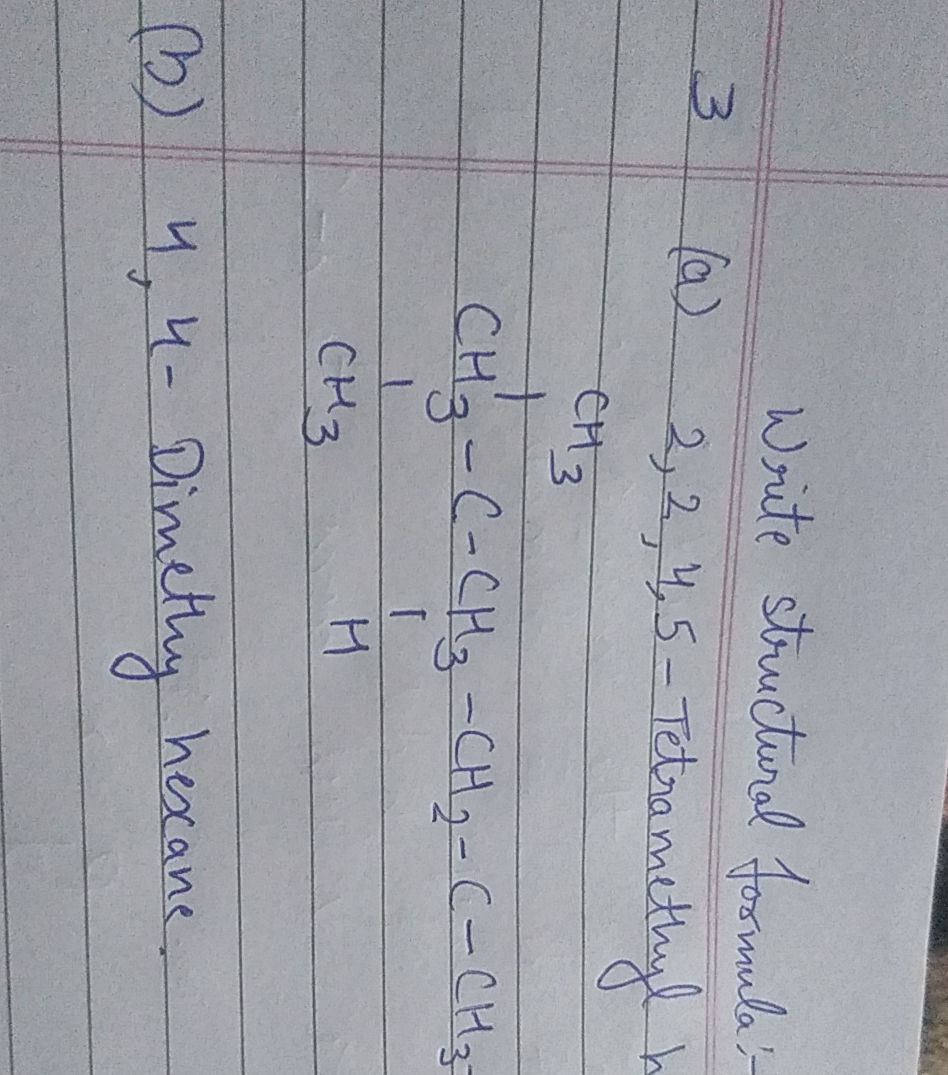 Write structural formula:-
3 (a) 2,2,4,5-Tetramethyl h
CH3
CH3-C-CH3-CH2-C-CH3-
CH3 H
(b) 4,4-Dimethy hexane.